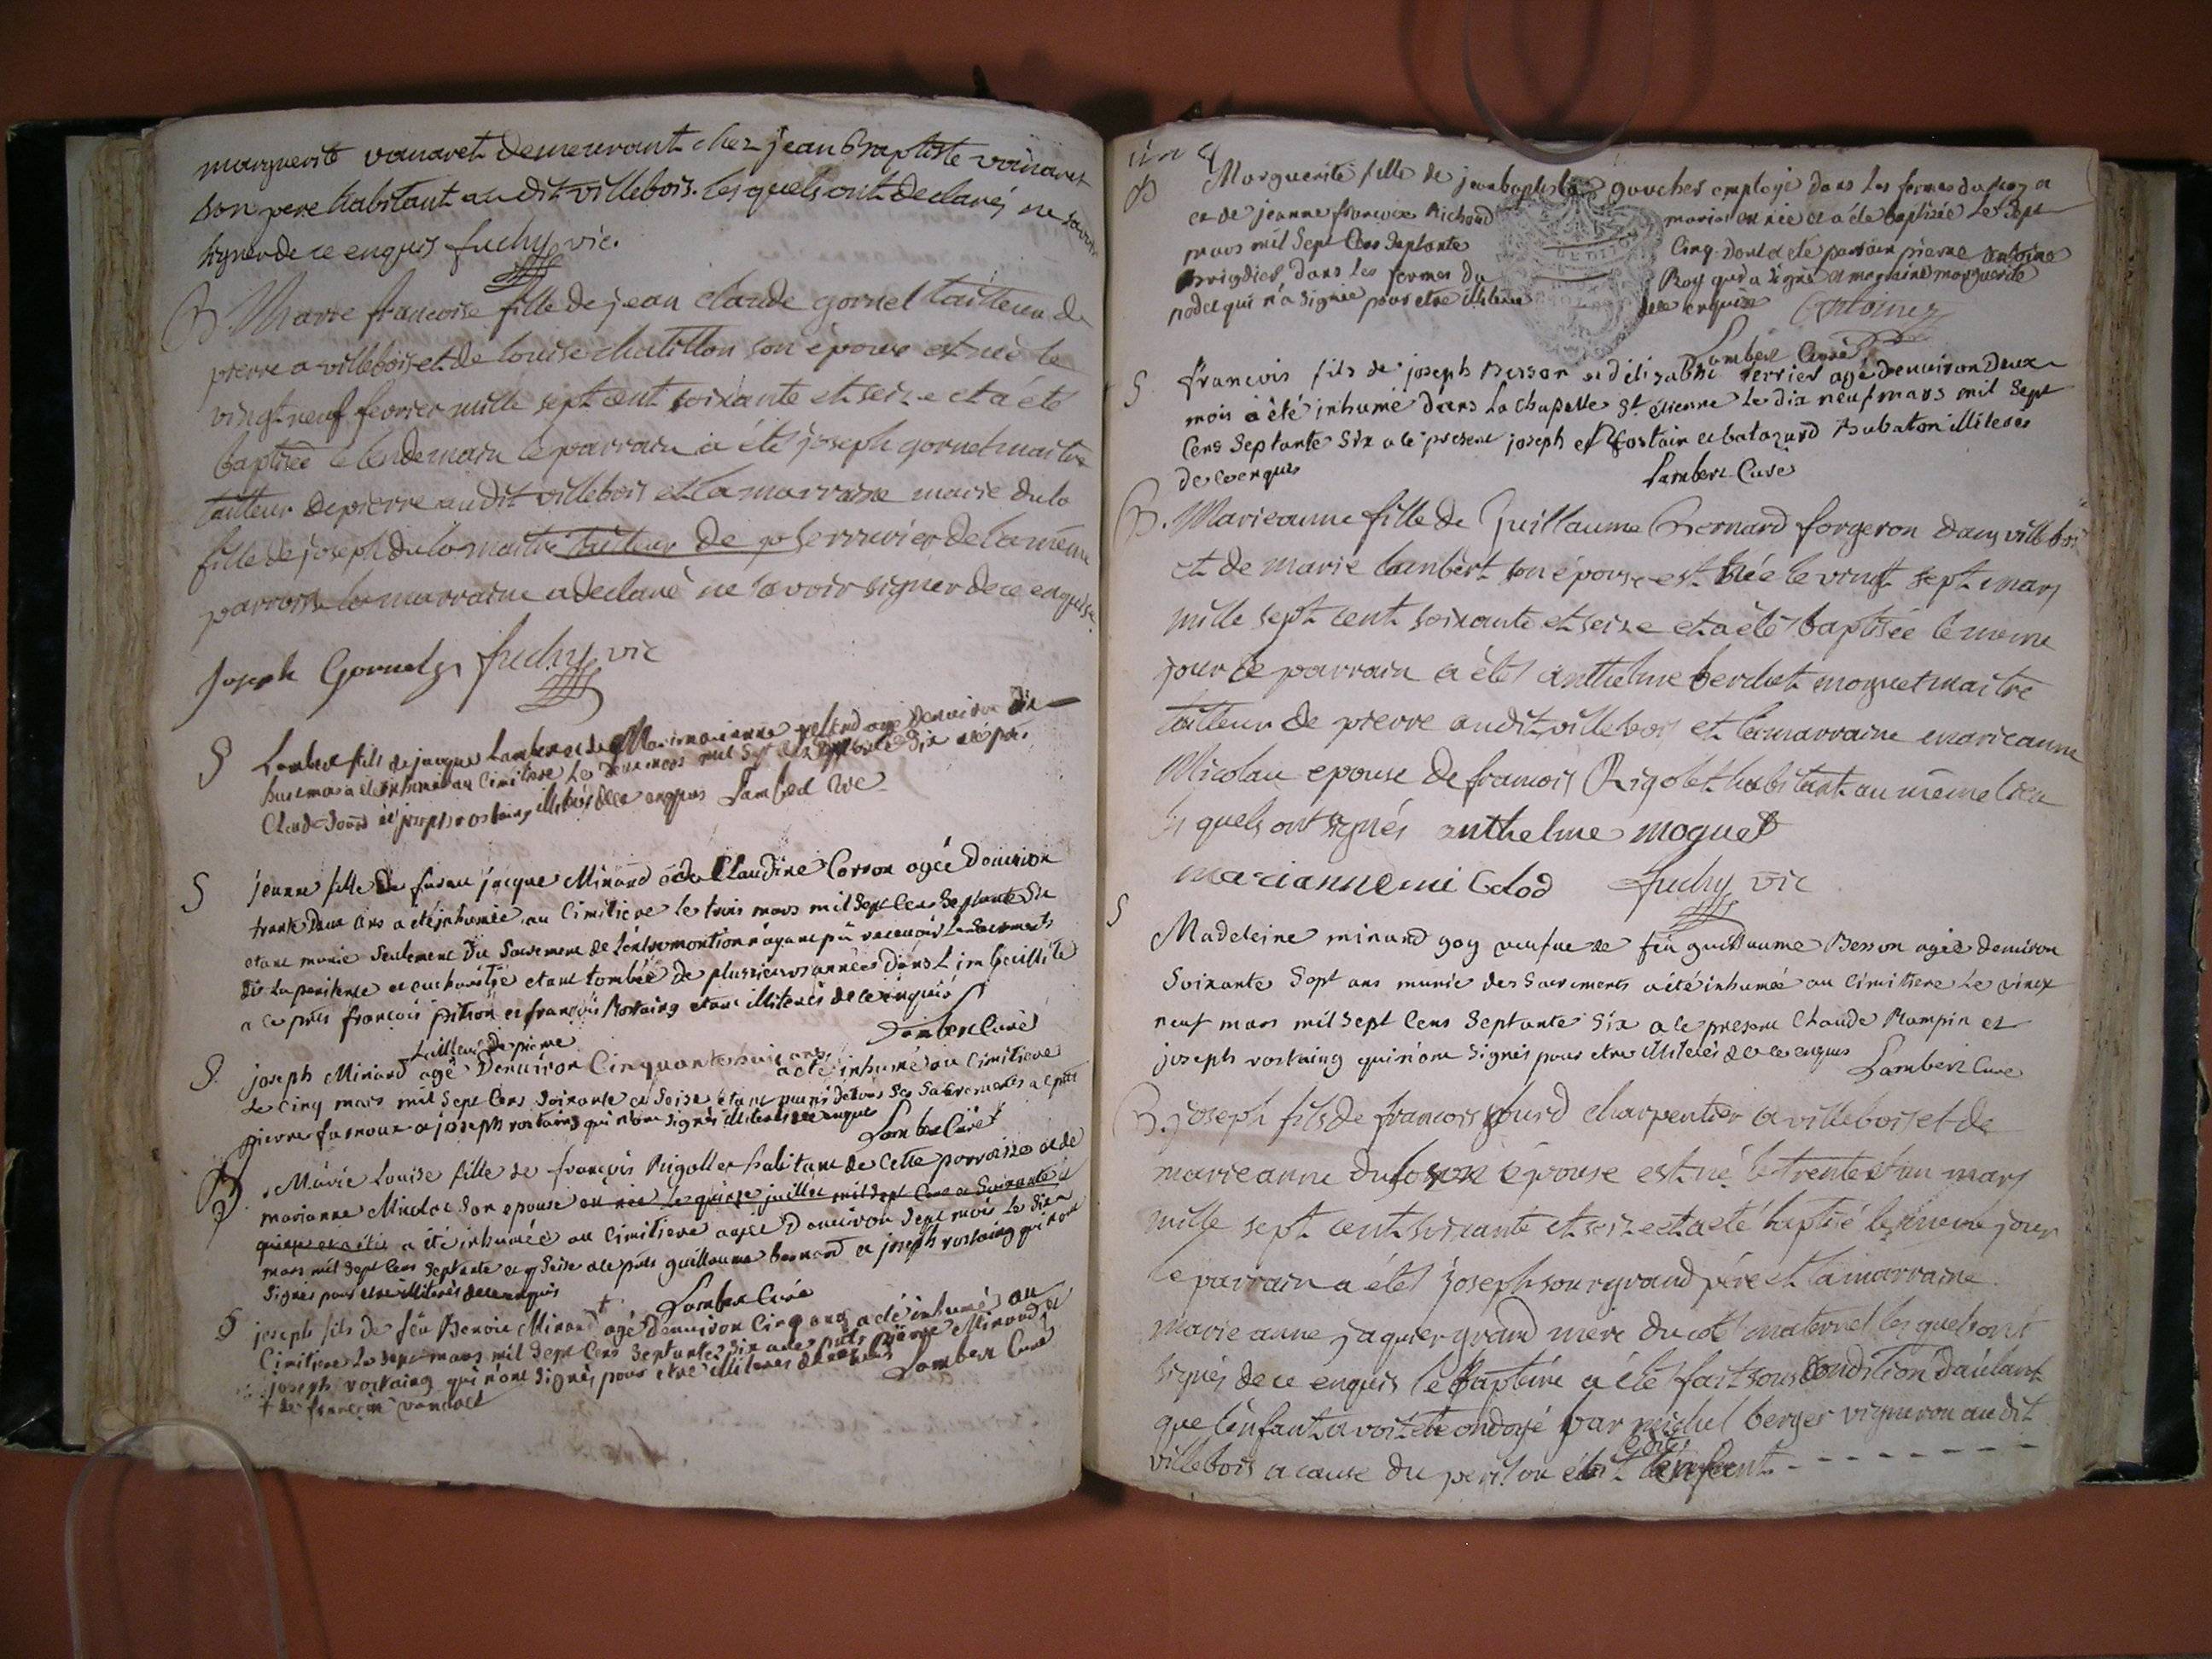 marguerite vanaret demeurant chez jean Baptiste vanaret
son pere habitant audit villebois. lesquels ont declarés ne savoir
signer de ce enquis fuchy vic.
B. Marie francoise fille de jean claude gornet tailleur de
pierre a villebois et de louise chatillon son épouse est née le
vingt neuf fevrier mille sept cent soixante et seize et a été
baptisée le lendemain le parrain a été joseph gornet maitre
tailleur de pierre audit villebois et la marraine marie dulo
fille de joseph dulo maitre tailleur de serrurier de la meme
parroisse la marraine a declaré ne savoir signer de ce enquise.
joseph Gornet fuchy vic
S Lambert fils de jacque Lambert et de Marie agé denuiron dix
huit mois a été inhumé au Cimitiere Le deux mars mil Sept
Claude et joseph rostaing illiterés de ce enquis Lambert
S jeanne fille de jacque Minand et de Claudine Corson agée denuiron
trante deux ans a été inhumée au Cimitiere le trois mars mil Sept Cens Septante Six
etant munie Seulement du Sacrement de l'extremontion n'ayant pû receuoir Les Sacrements
de La penitence et eucharistie etant tombée de plussieurs années dans L'imbecillité
a ce prits françois pition et françois Rostaing etant illiterés de ce enquis
Lambert Curé
tailleur de pierre
S. joseph Minand agé denuiron Cinquante huit ans a été inhumé au Cimitiere
Le Cinq mars mil Sept Cens Soixante et Seise etant muni de tous Ses Sacrements a ce prits
pierre furnoux et joseph rostaing qui n'ont Signés illiterés de ce enquis Lambert Curé
B S. Marie Louise fille de françois Rigollet habitant de Cette parroisse et de
marianne Miclod Son epouse est née Le quinze juillet mil Sept Cens et Soixante et
quinze et a été a été inhumée au Cimitiere agée denuiron Sept mois Le dix
mars mil Sept Cens Septante et Seise a ce prits guillaume bernard et joseph rostaing qui n'ont
Signés pour etre illiterés de ce enquis
Lambert Curé
S joseph fils de feu Benoit Minand + agé denuiron Cinq ans a été inhumé au
Cimitiere Le Sept mars mil Sept Cens Septante Six a ce prits pierre Minand et
joseph rostaing qui n'ont Signés pour etre illiterés de ce enquis Lambert Curé
+ de françoise
B Marguerite fille de jean baptiste gaucher employé dans les fermes du Roy a
et de jeanne francoise Richand mariés est née et a été baptisée Le Sept
mars mil Sept Cens Septante Cinq. dont a été parrain pierre antoine
brigdier dans les fermes du Roy qui a Signé et marraine marguerite
nodet qui n'a Signée pour etre illiterée de ce enquise Antoine
Lambert Curé
S françois fils de joseph Besson et d'elizabhe Terrier agé denuiron deux
mois a été inhumé dans La Chapelle St. étienne Le dix neuf mars mil Sept
Cens Septante Six a ce present joseph Rostain et batazard Babaton illiterés
de ce enquis Lambert Curé
B. Marieanne fille de Guillaume Bernard forgeron dans villebois
et de marie lambert son épouse est née le vingt sept mars
mille sept cent soixante et seize et a été baptisée le meme
jour le parrain a été anthelme berchet moguet maitre
tailleur de pierre audit villebois et la marraine marieanne
Micolau epouse de francois Rigolet habitant au même lieu
lesquels ont signés anthelme moguet
mariannemiClod fuchy vic
S Madeleine minand goy veufue de feu guillaume Besson agée denuiron
Soixante Sept ans munie des Sacrements a été inhumée au Cimitiere Le vinct
neuf mars mil Sept Cens Septante Six a ce present Claude Rampin et
joseph rostaing qui n'ont Signés pour etre illiterés de ce enquis Lambert Curé
B. joseph fils de francois jourd charpentier a villebois et de
marieanne dulo son épouse est né le trente et un mars
mille sept cent soixante et seize et a été baptisé le meme jour
le parrain a été joseph son grand pére et la marraine
marie anne jaquier grand mere du coté maternel lesquels ont
signés de ce enquis le Baptême a été fait sous condition d'autant
que l'enfant avoit été ondoyé par michel berger vigneron audit
villebois a cause du peril ou etoit ledit enfant - - - - - - -